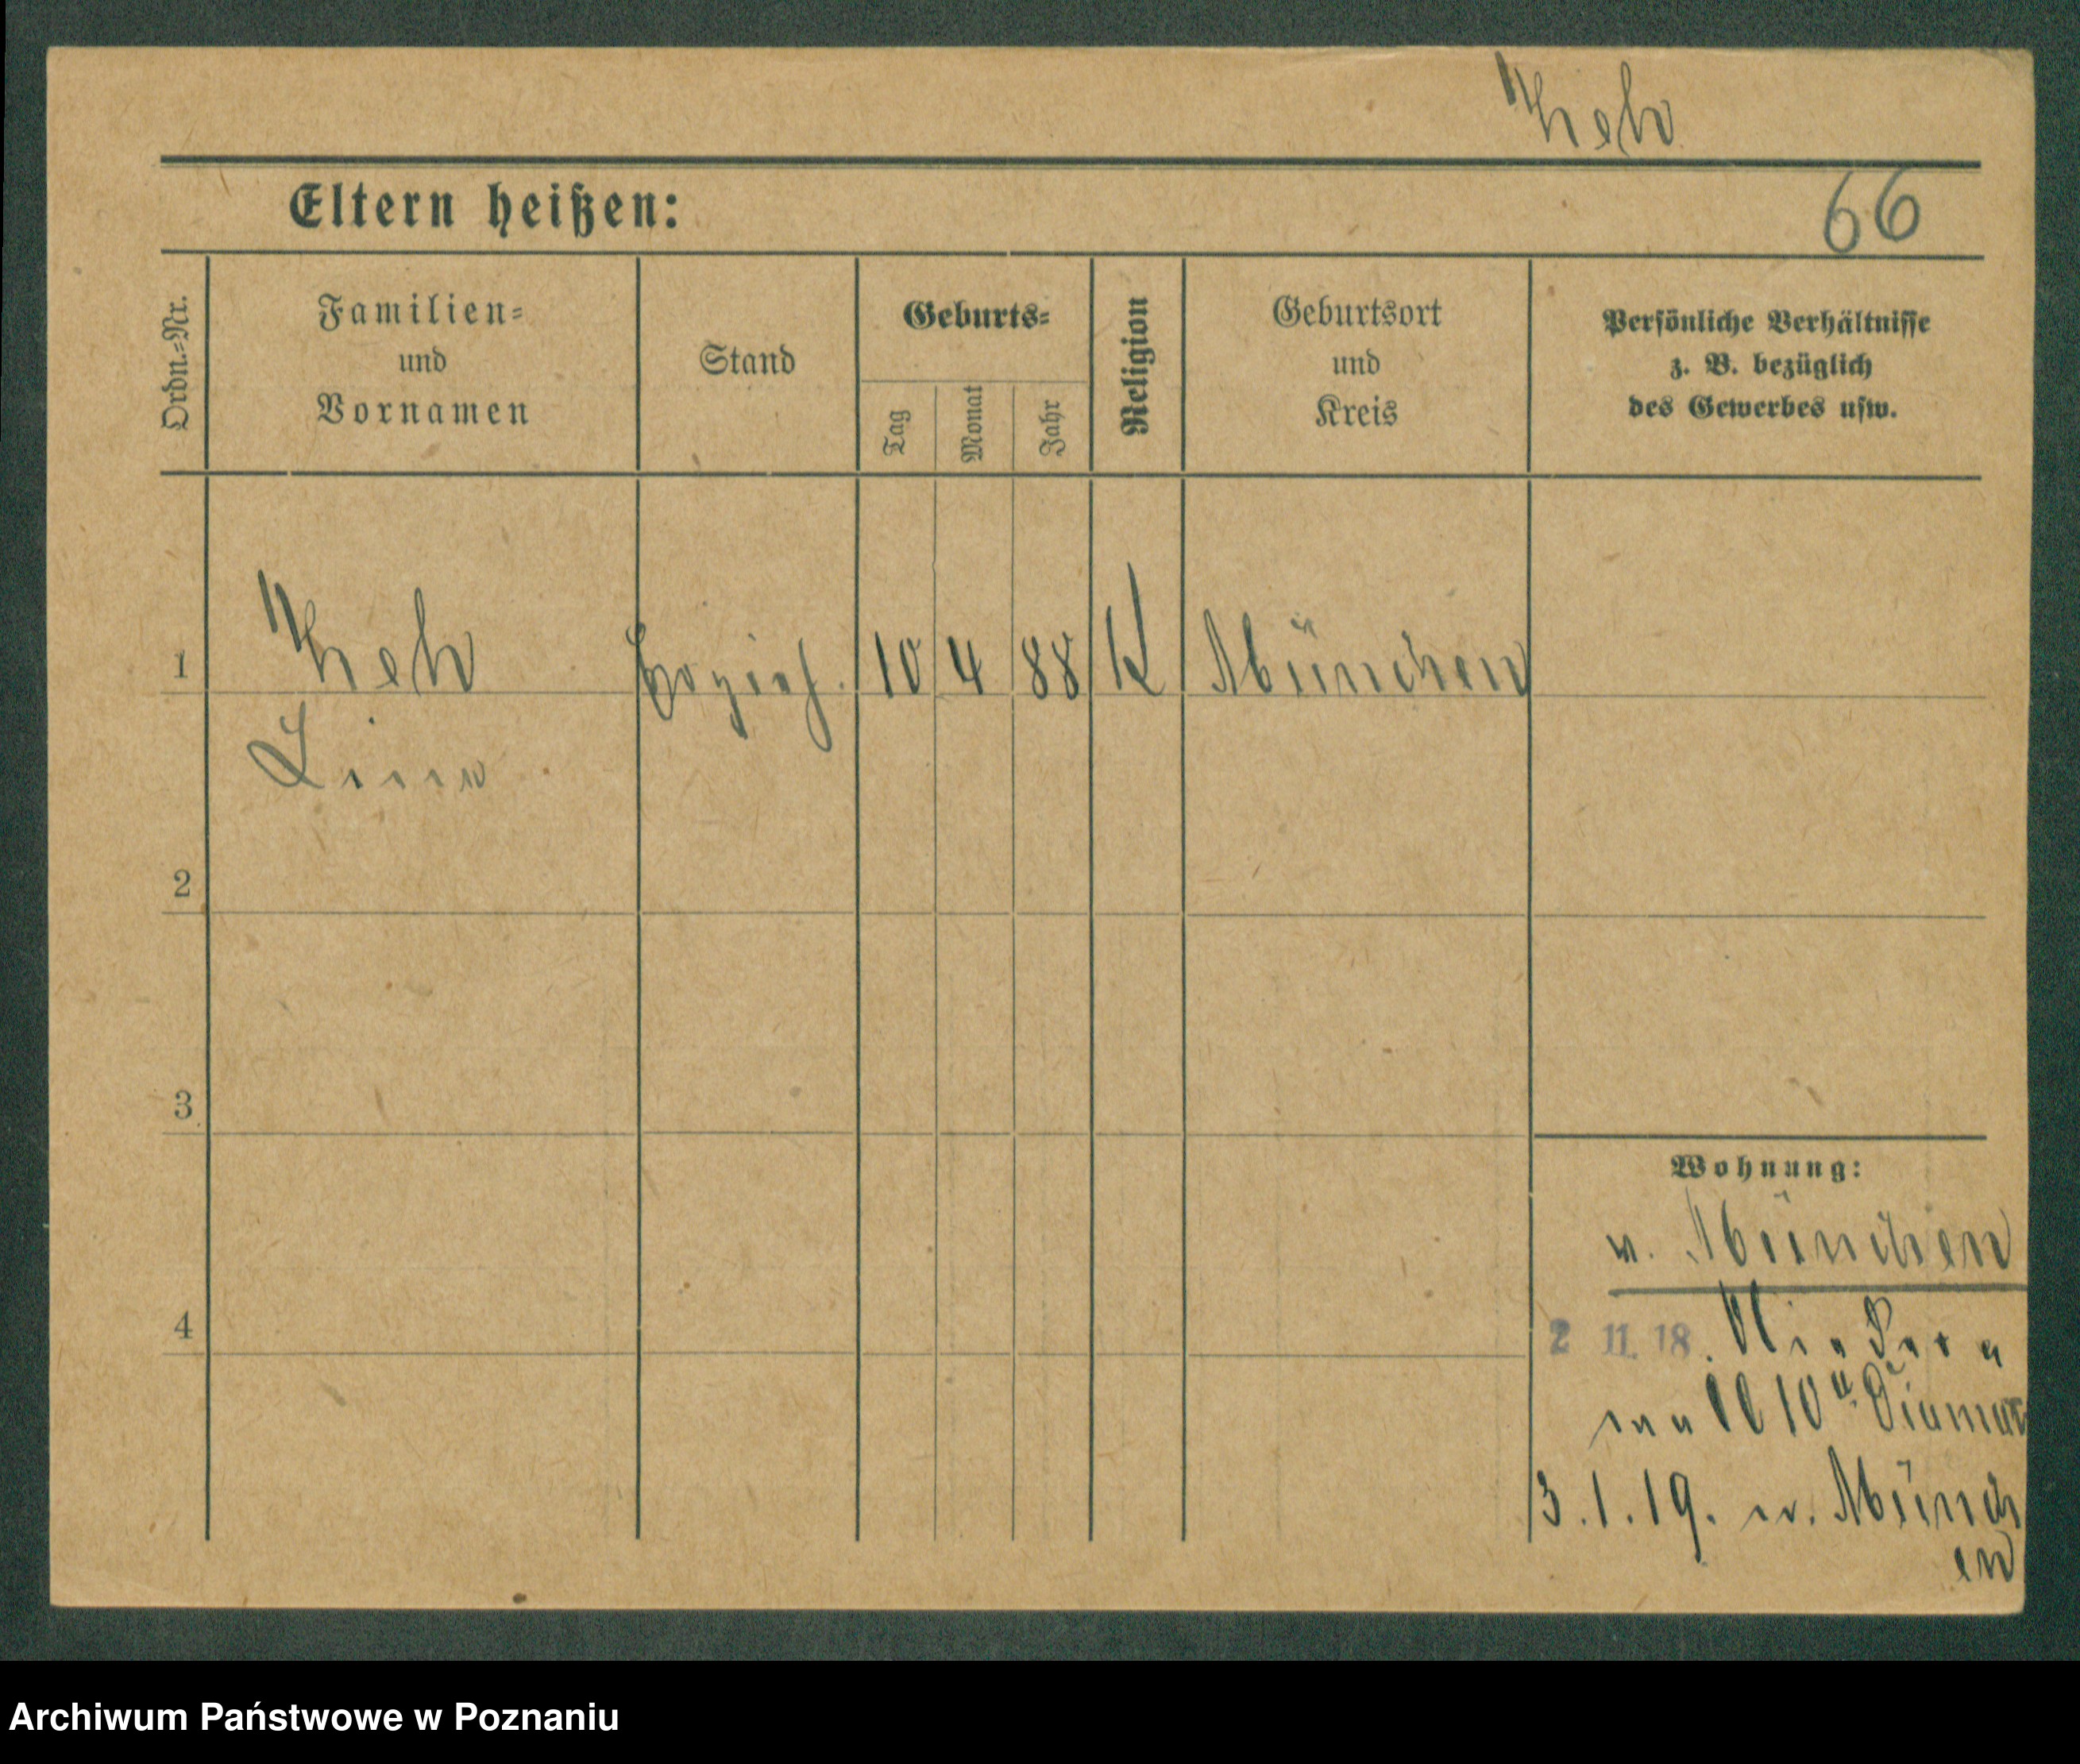 66
Eltern heißen:
Ordn.=Nr.
Familien=
und
Vornamen
Stand
Geburts=
Tag
Monat
Jahr
Religion
Geburtsort
und
Kreis
Persönliche Verhältnisse
z. B. bezüglich
des Gewerbes usw.
1
10 4 88 K München
2
3
4
Wohnung:
v. München
2 11. 18.
3.1.19. n. Münch
en
Archiwum Państwowe w Poznaniu